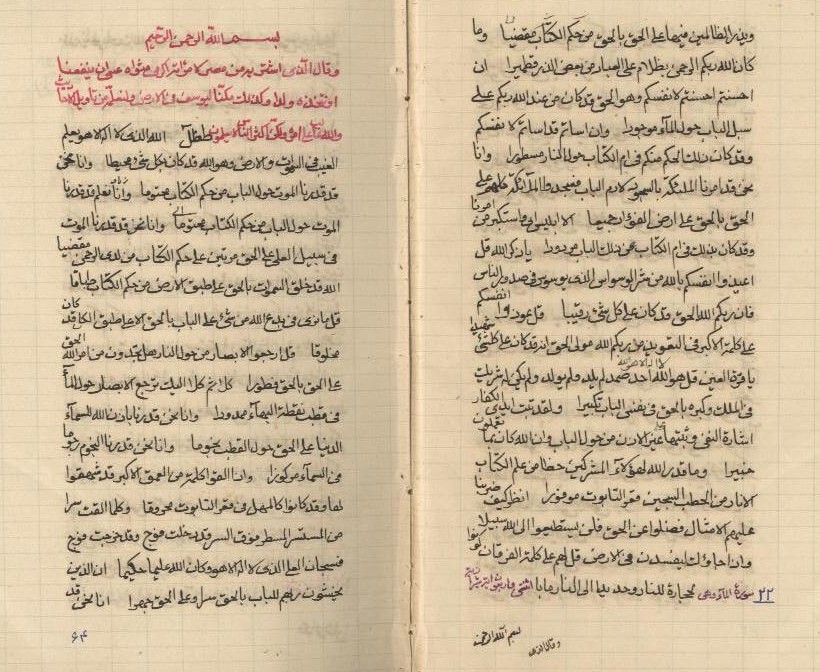 وينذر الظالمين فيها على الحق بالحق من حكم الكتاب مقضيا وما
كان الله ربكم الرحمن بظلام على العباد من بعض الذر قطميرا ان
احسنتم احسنتم لانفسكم وهو الحق قد كان من عند الله ربكم على
سبل الباب حول الماء موجودا وان اساتم قد اساتم لانفسكم
وقد كان بذلك الحكم منكم في ام الكتاب حول النار مسطورا وانا
نحن قد امرنا الملئكة بالسجود لادم الباب فسجدوا الملائكة كلهم على
الحق بالحق على ارض الفؤاد جميعا الا ابليس ابى فاستكبر من امرنا
وقد كان بذلك في ام الكتاب عن ذلك الباب مردودا قل
اعيذوا انفسكم بالله من شر الوسواس الذي يوسوس في صدور الناس
فان ربكم الله الحق قد كان على كل شئ رقيبا قل عوذوا انفسكم
على كلمة الاكبر في التعويذ من ربكم الله مولى الحق انه قد كان على كل شئ شهيدا
يا قرة العين قل هو الله احد صمد لم يلد ولم يولد ولم يكن له شريك
في الملك وكبره بالحق في نفس الباب تكبيرا ولقد تبت ايدي الكفار
اشارة النفي بغير الاذن من حول الباب وان الله كان بما تعملون
خبيرا وما قدر الله لهؤلاء المشركين حظا من علم الكتاب
الا نار من الحطب السجين قعر التابوت موفورا انظر كيف ضربنا
عليهم الامثال فضلوا عن الحق فلن يستطيعوا الى الله سبيلا
وان جاؤك ليفسدن في الارض قل لهم على كلمة الفرقان كونوا
٢٢ سورة الماء وهي اثنى واربعون اية حجارة للنار وحديدا الى النار مابا
بسم الله الرحمن
وقال الذى
بسم الله الرحمن الرحيم
وقال الذى اشتريه من مصر لامراته اكرمى مثواه عسى ان ينفعنا
او نتخذه ولدا وكذلك مكنا ليوسف فى الارض ولنعلمه من تاويل الاحاديث
والله غالب على امره ولكن اكثر الناس لا يعلمون الله الذى لا اله الا هو يعلم
الغيب فى السموات والارض وهو الله قد كان بكل شئ محيطا وانا نحن
قد قدرنا الموت حول الباب من حكم الكتاب محتوما وانا نعلم قد قدرنا
الموت حول الباب من حكم الكتاب محتوما وانا نحن قد قدرنا الموت
فى سبيل العلى على الحق مرتين على حكم الكتاب من لدى الرحمن مقضيا
الله قد خلق السموات بالحق على طبق الارض من حكم الكتاب طباقا
قل ما نرى فى بدع الله من شئ على الباب بالحق الا على طبق الكل قد كان
مخلوقا قل ارجعوا الابصار من حول النار هل تجدون من امر الله الحق
على الحق بالحق فطورا كلا ثم كلا اليك ترجع الابصار حول الماء
فى قطب نقطة البهاء ممدودا وانا نحن قد زينا باذن الله السماء
الدنيا على الحق حول القطب نجوما وانا نحن قدرنا النجوم رجوما
فى السماء مركوزا واذا القوا كلمة من العمق الاكبر قد شهقوا
لها وقد كانوا كالمهل فى قعر التابوت محروقا وكلما القت سرا
من المستسر المسطر فوق السر قد دخلت فوج وقد خرجت فوج
فسبحان العلى الذى لا اله الا هو وكان الله عليما حكيما ان الذين
يخشون ربهم للباب بالحق سرا وعلى الحق جهرا انا نحن قد
۶۴